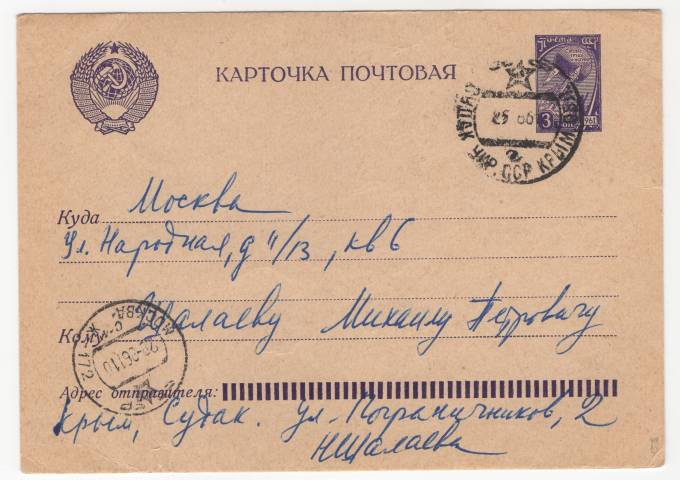 КАРТОЧКА ПОЧТОВАЯ
Почта СССР
3 коп
1961
СУДАК
УКР. ССР КРЫМ
Куда Москва
Ул. Народная, д 11/13, кв 6
Кому Шалаеву Михаилу Петровичу
МОСКВА
Ж-172
Адрес отправителя:
Крым, Судак. ул. Пограничников, 2
НШалаева